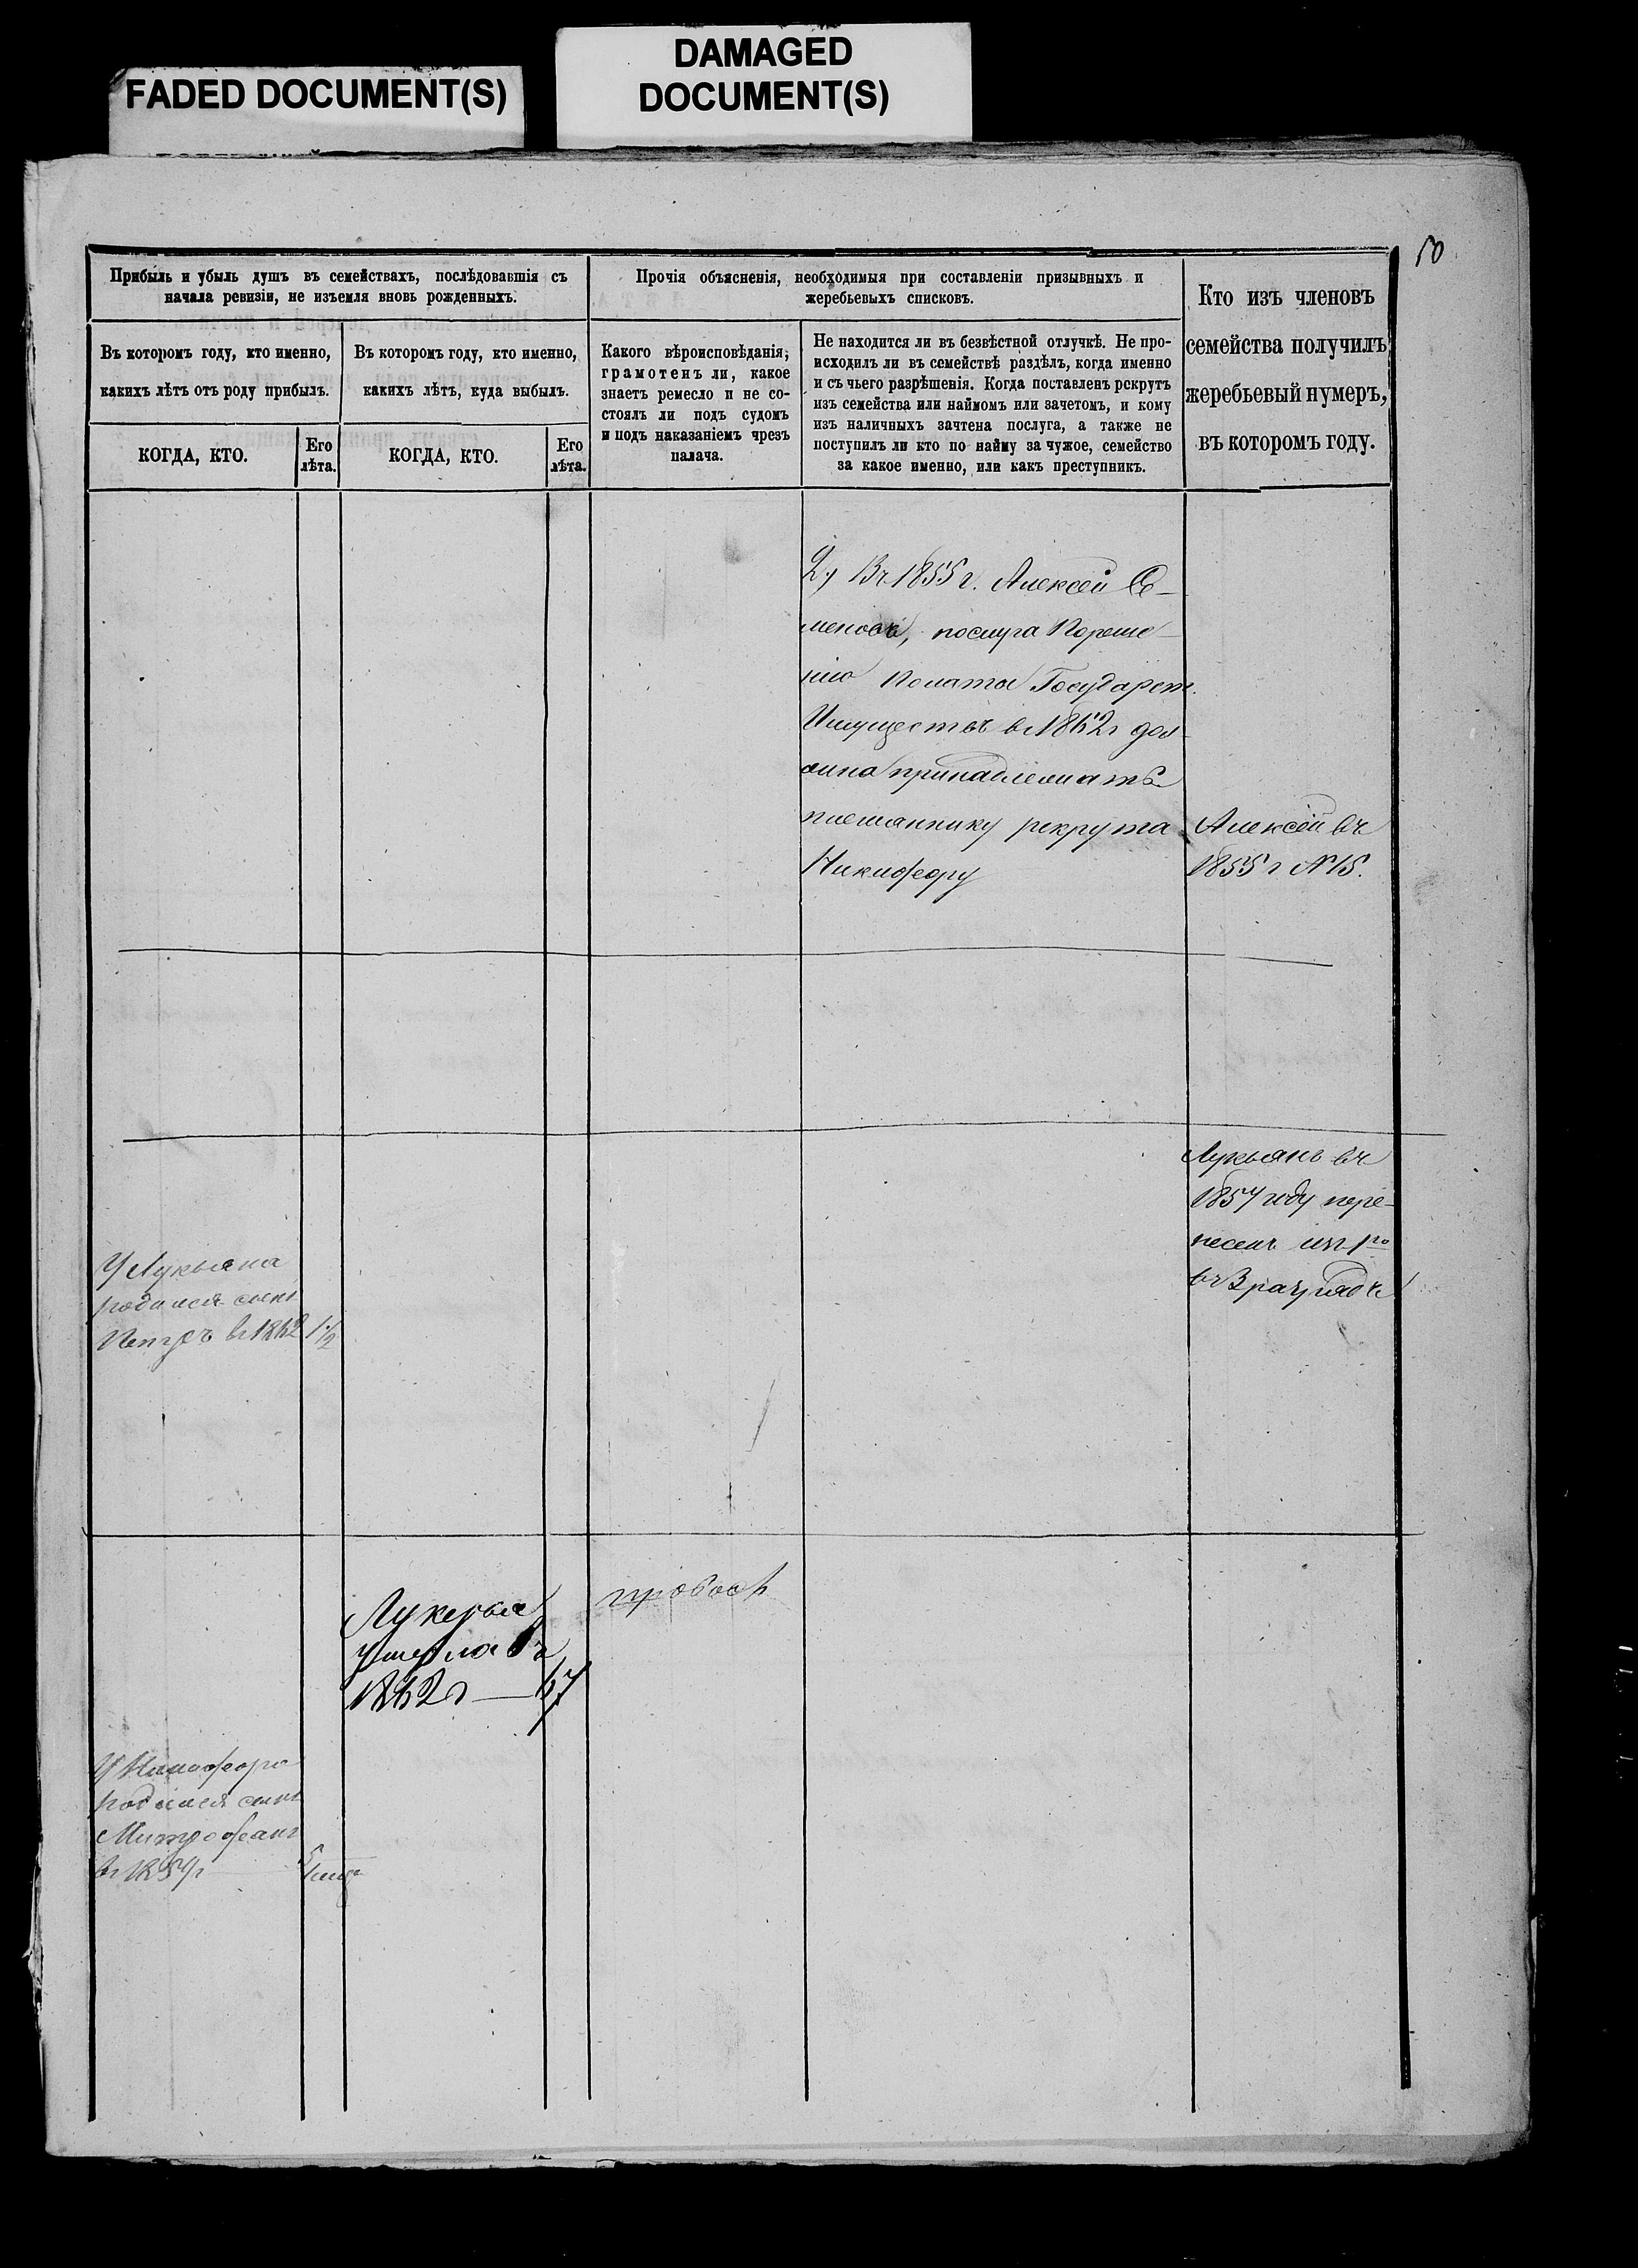 FADED DOCUMENT(S)
DAMAGED
DOCUMENT(S)
50
Прибыль и убыль душъ въ семействахъ, послѣдовавшія съ
начала ревизіи, не изъемля вновь рожденныхъ.
Въ которомъ году, кто именно,
какихъ лѣтъ отъ роду прибылъ.
Въ которомъ году, кто именно,
какихъ лѣтъ, куда выбылъ.
КОГДА, КТО.
Его
лѣта.
КОГДА, КТО.
Его
лѣта.
Прочія объясненія, необходимыя при составленіи призывныхъ и
жеребьевыхъ списковъ.
Какого вѣроисповѣданія,
грамотенъ ли, какое
знаетъ ремесло и не со-
стоялъ ли подъ судомъ
и подъ наказаніемъ чрезъ
палача.
Не находится ли въ безвѣстной отлучкѣ. Не про-
исходилъ ли въ семействѣ раздѣлъ, когда именно
и съ чьего разрѣшенія. Когда поставленъ рекрутъ
изъ семейства или наймомъ или зачетомъ, и кому
изъ наличныхъ зачтена послуга, а также не
поступилъ ли кто по найму за чужое, семейство
за какое именно, или какъ преступникъ.
Кто изъ членовъ
семейства получилъ
жеребьевый нумеръ,
въ которомъ году.
2) Въ 1855 г. Алексей Се-
меновъ, послуга Пореше-
нію Полаты Государст.
Имуществъ въ 1862 г дол-
жна принадлежать
племаннику рекрута
Никифору
Алексей въ
1855 г №15.
Лукьянъ въ
1857 году пере-
несенъ изъ 1го
въ 3 разрядъ
У Лукьяна
родился сынъ
Петръ въ 1862
1 1/2
Лукерья
умерла въ
1862 г
67
У Никифора
родился сынъ
Митрофанъ
въ 1859 г